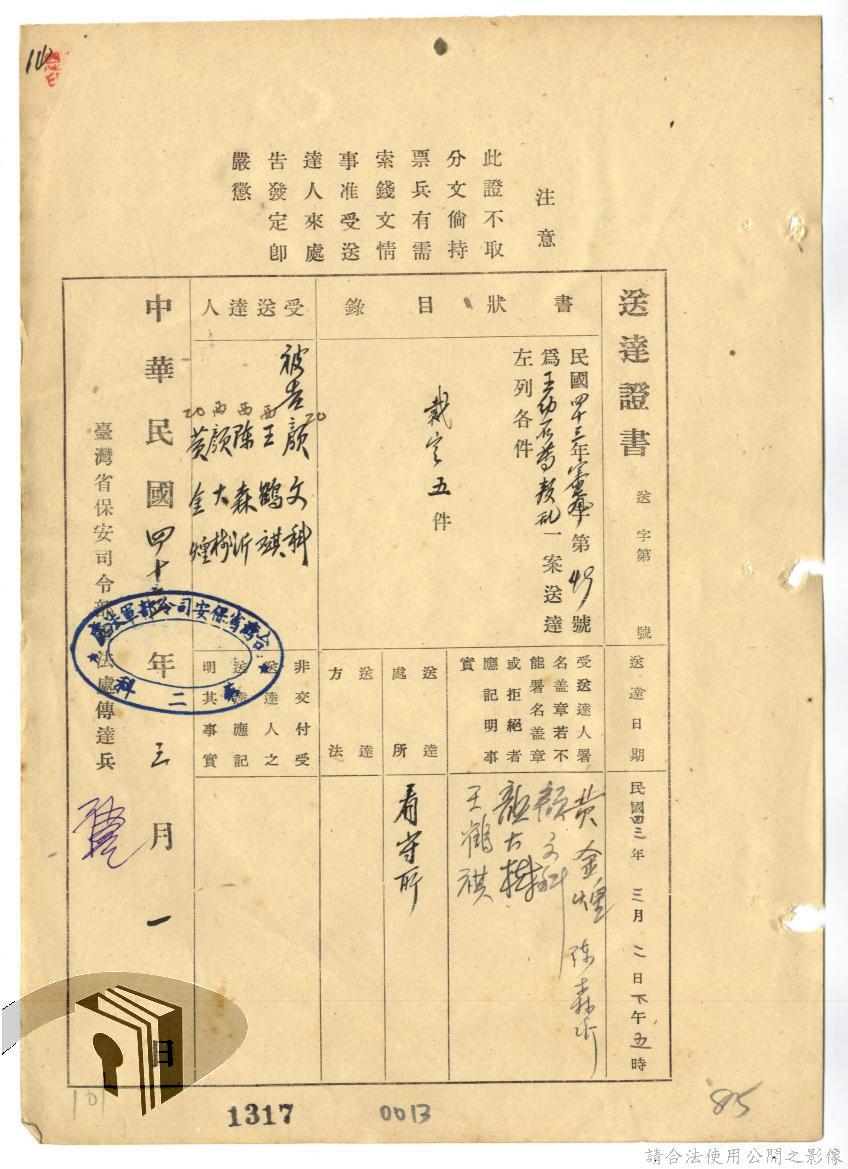 注意
此證不取
分文倘持
票兵有需
索錢文情
事准受送
達人來處
告發定卽
嚴懲
送達證書
送字第 號
書狀目錄
民國四十三年 第 號
爲王幼石等叛乱一案送達
左列各件
裁定五件
受送達人
被告顏文科
王鶴祺
陳森沂
顏大樹
黃金煌
送達日期
民國四三年三月二日下午五時
受送達人署
名盖章若不
能署名盖章
或拒絕者
應記明事
實
黃金煌 陈森沂
顏文科
顏大樹
王鶴祺
送達處所
看守所
送達方法
非交付受
送達人之
送達應記
明其事實
中華民國四十三年三月一日
臺灣省保安司令部軍法處傳達兵
台灣省保安司令部軍法處
第二科
1317
0013
85
101
請合法使用公開之影像